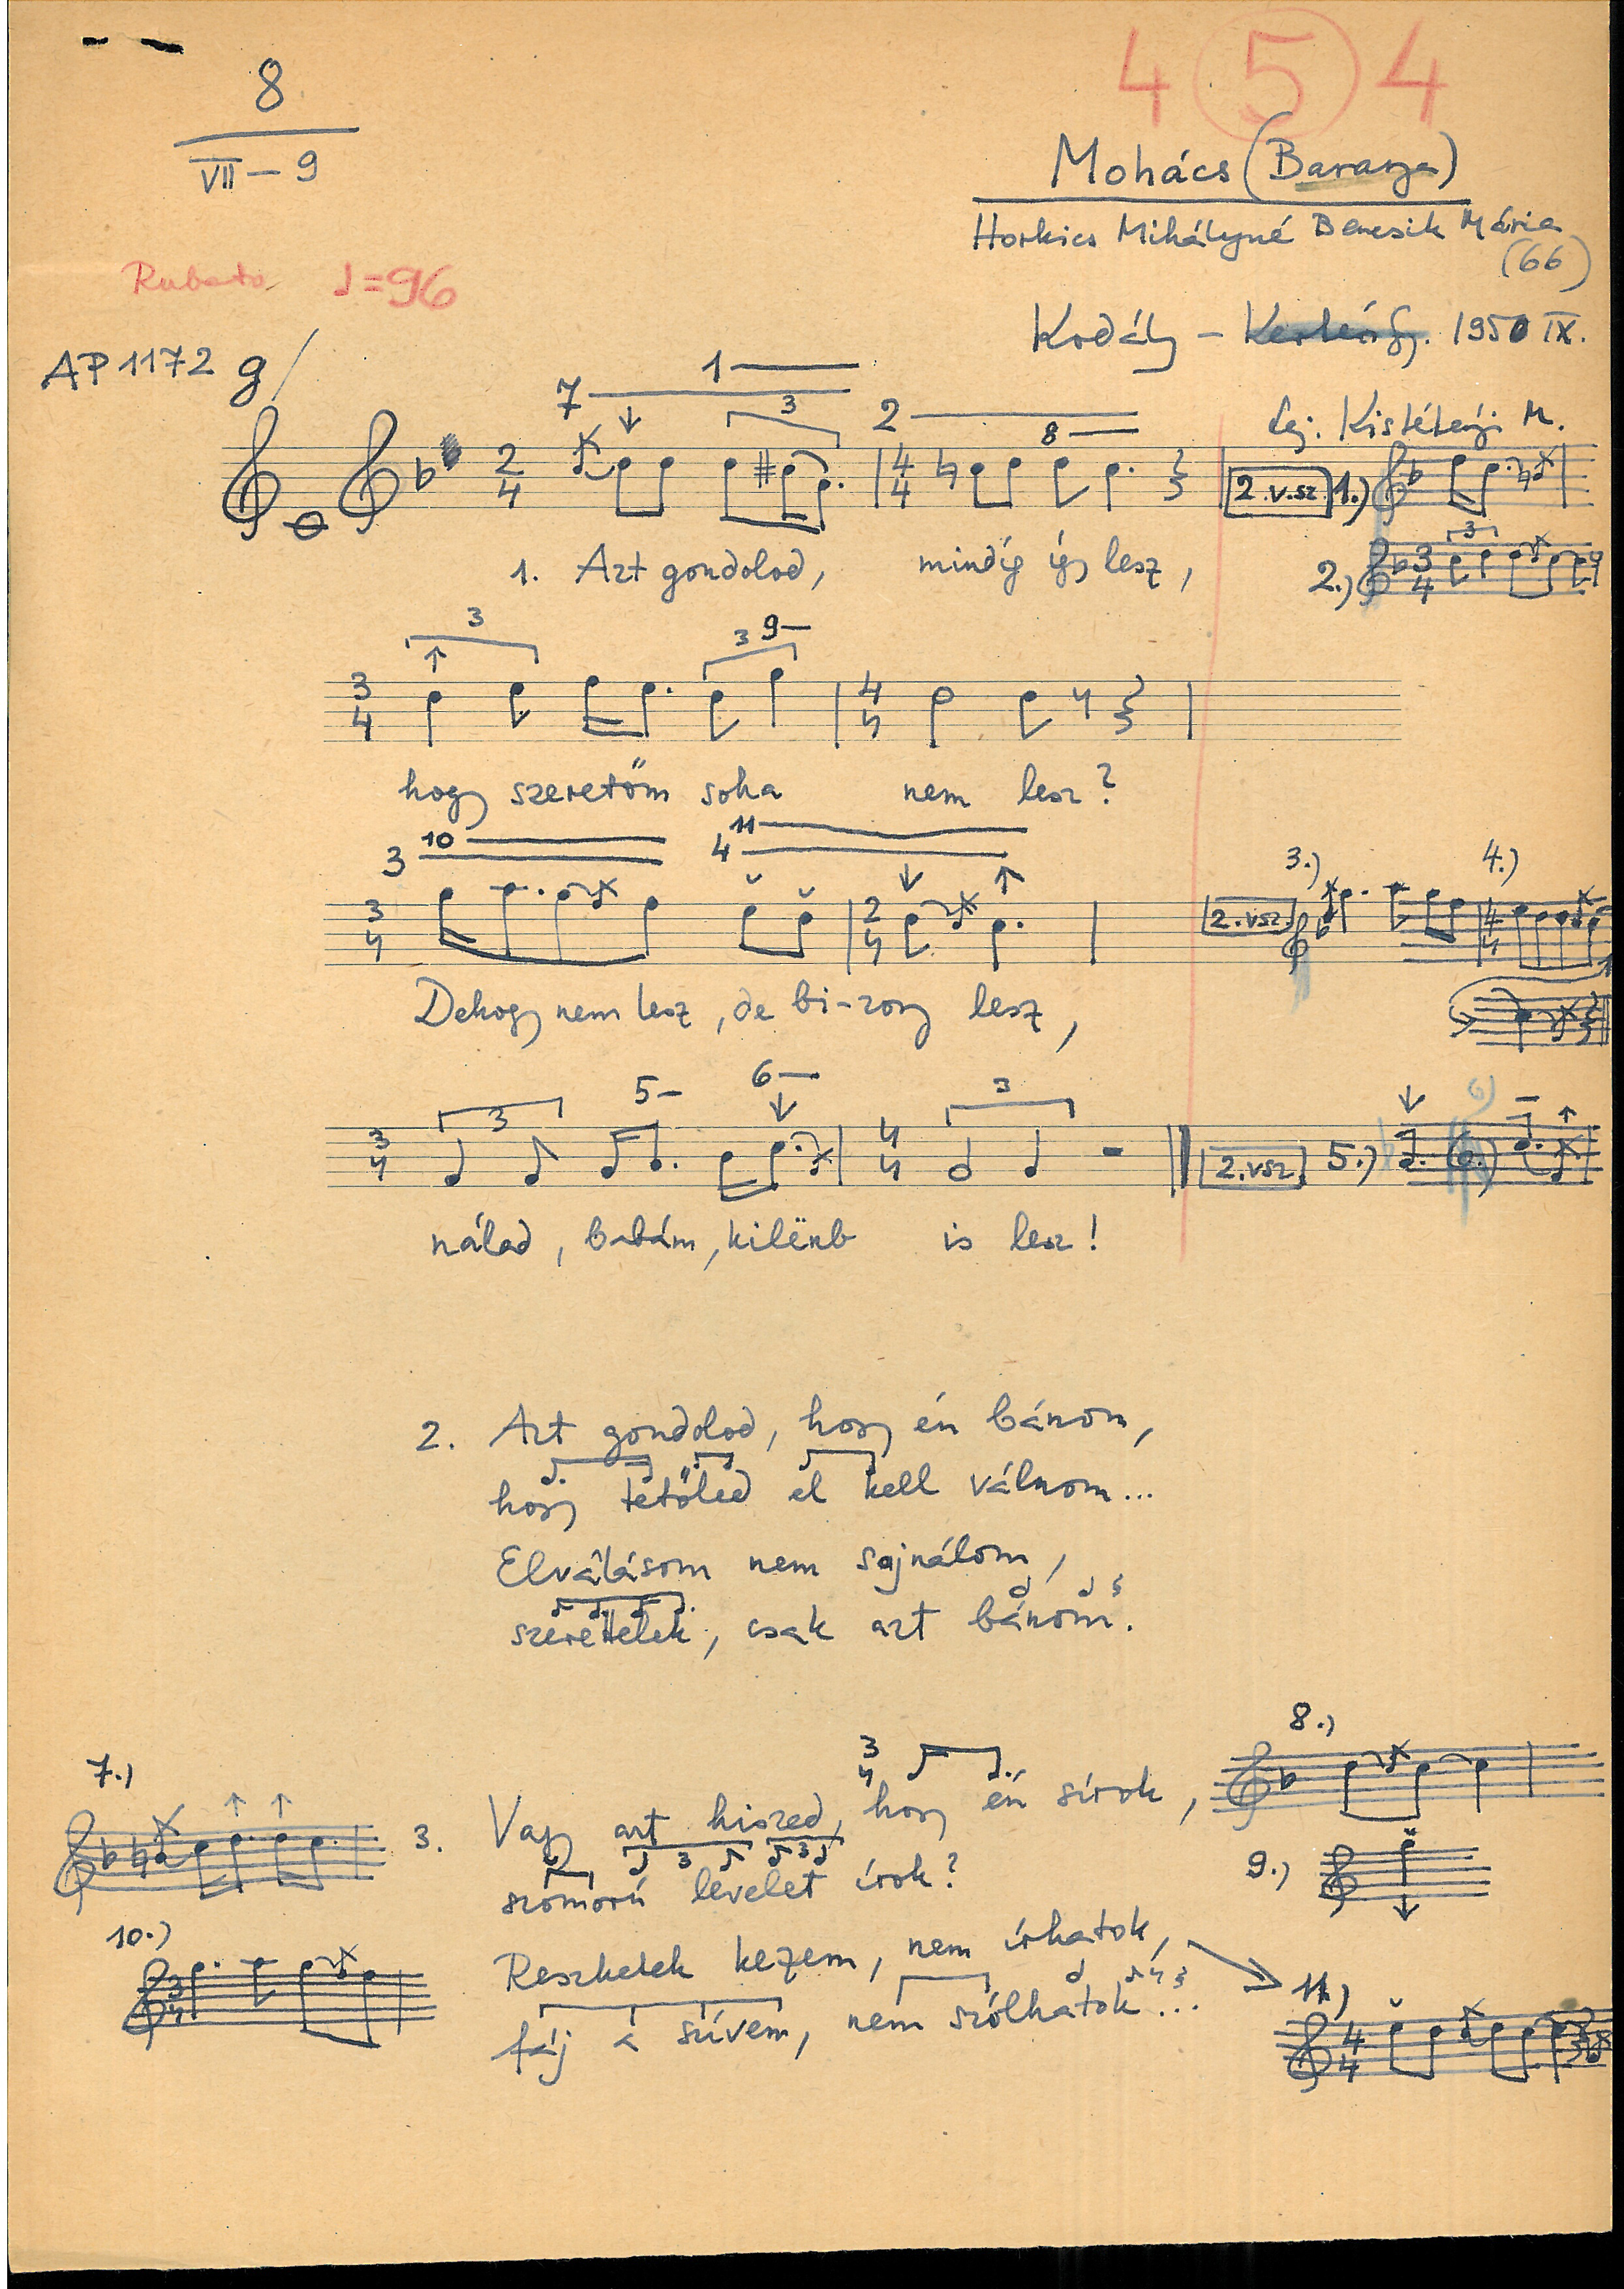 4 5 4
8
VII - 9
Mohács (Baranya)
Horkics Mihályné Bencsik Mária
(66)
Rubato ♩=96
Kodály - 1950 IX.
AP 1172 g/
lej. Kistétényi M.
7 1 3 2 8
2/4 4/4 2.v.sz. 1.)
1. Azt gondolod, mindíg így lesz,
2.) 3/4 3
3 3 9
3/4 4/4
hogy szeretőm soha nem lesz?
10 11
3 4
3/4 2/4 2.vsz. 3.) 4.) 4/4
Dehogy nem lesz, de bi-zony lesz,
3 5 6 3
3/4 4/4 2.vsz. 5.) 6.)
nálad, babám, kilënb is lesz!
2. Azt gondolod, hogy én bánom,
hogy tetőled el kell válnom...
Elválásom nem sajnálom,
szerettelek, csak azt bánom.
7.)
3/4
8.)
3. Vagy azt hiszed, hogy én sírok,
3 3
szomorú levelet írok?
9.)
10.) 3/4
Reszketek kezem, nem írhatok,
fáj a szívem, nem szólhatok...
11.) 4/4